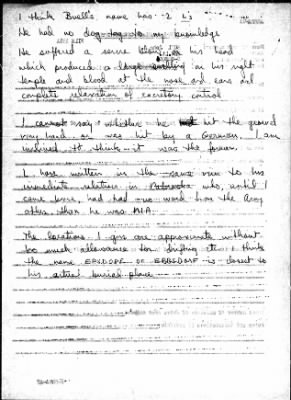 I think Buell's name has 2 L's
He had no dog-tag to my knowledge
He suffered a severe blow on his head
which produced a large swelling on his right
temple and blood at the nose and ears and
complete relaxation of excretory control
I cannot say whether he hit the ground
very hard or was hit by a German. I am
inclined to think it was the former.
I have written in the same vein to his
immediate relatives in Nebraska who, until I
came home, had had no word from the Army
other than he was M.I.A.
The locations I give are approximate without
too much allowance for drifting etc. I think
the name EBSDORF or EBBSDORF is closest to
his actual burial place